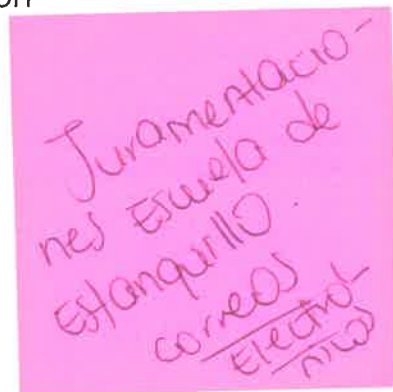 Juramentacio-
nes Escuela de
Estanquillo.
correos
Electró-
nicos